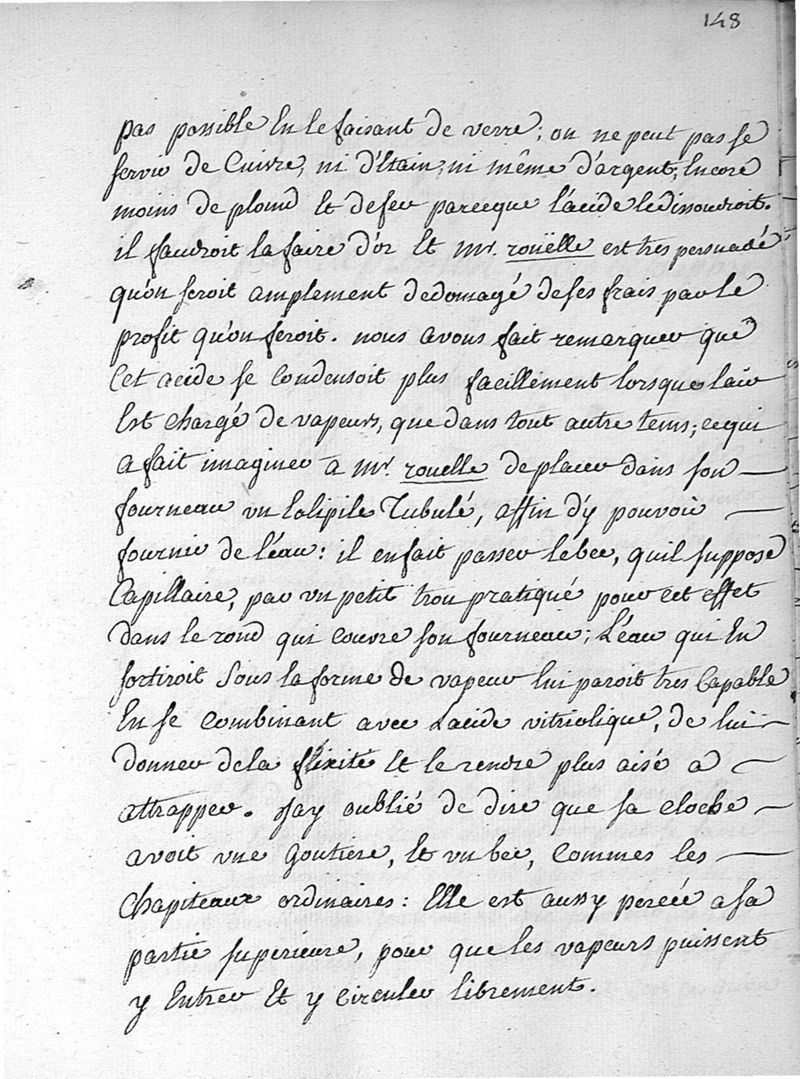 148
pas possible En le faisant de verre; on ne peut pas se
servir de Cuivre, ni d'Etain, ni même d'argent, Encore
moins de plomb Et de fer parceque l'acide le dissoudroit.
il faudroit la faire d'or Et Mr. rouëlle est tres persuadé
qu'on seroit amplement dedomagé de ses frais par le
profit qu'on feroit. nous avons fait remarquer que
Cet acide se Condensoit plus facillement lorsque l'air
Est Chargé de vapeurs, que dans tout autre tems; ce qui
a fait imaginer a Mr. rouelle de placer dans son
fourneau un Eolipile Tubulé, affin d'y pouvoir
fournir de l'eau: il en fait passer le bec, qu'il suppose
Capillaire, par un petit trou pratiqué pour cet effet
dans le rond qui couvre son fourneau; L'eau qui En
sortiroit Sous la forme de vapeur lui paroit tres Capable
En se Combinant avec L'acide vitriolique, de lui
donner de la fixité Et le rendre plus aisé a
attrapper. J'ay oublié de dire que sa cloche
avoit une Goutiere, Et un bec, Commes les
Chapiteaux ordinaires: Elle est aussy percée a sa
partie superieure, pour que les vapeurs puissent
y Entrer Et y Circuler librement.